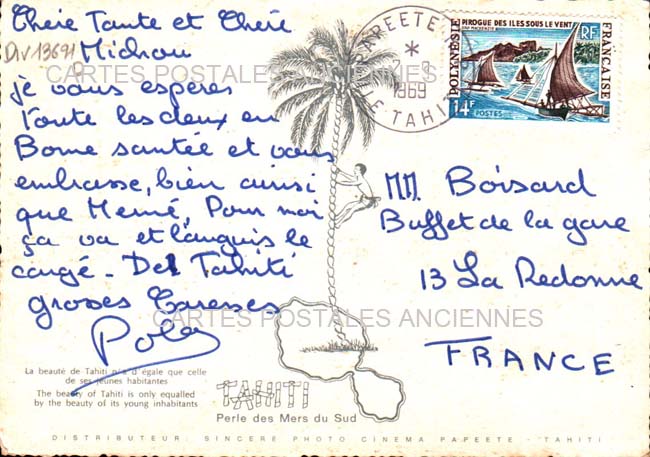 Chère Tante et Chère
Div13691
Michou
CARTES POSTALES ANCIENNES
je vous espères
toute les deux en
Bonne santée et vous
embrasse, bien ainsi
que Mémé, Pour moi
ça va et languis le
congé - De Tahiti
groses Caresses
PAPEETE
1969
ILE-TAHITI
PIROGUE DES ILES SOUS LE VENT
POLYNÉSIE
FRANÇAISE
RF
14F
POSTES
MM. Boisard
Buffet de la gare
13 La Redonne
FRANCE
CARTES POSTALES ANCIENNES
La beauté de Tahiti n'a d'égale que celle
de ses jeunes habitantes
The beauty of Tahiti is only equalled
by the beauty of its young inhabitants
TAHITI
Perle des Mers du Sud
DISTRIBUTEUR: SINCERE PHOTO CINEMA PAPEETE - TAHITI